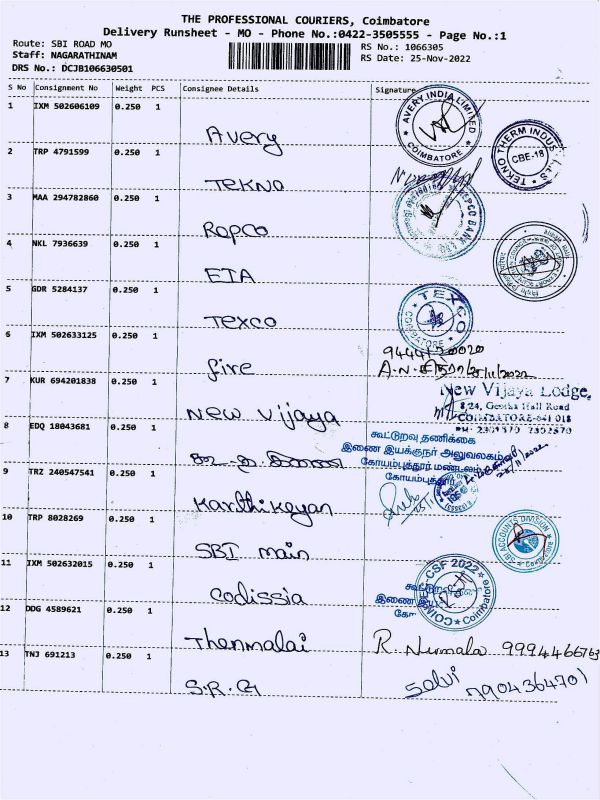 THE PROFESSIONAL COURIERS, Coimbatore
Delivery Runsheet - MO - Phone No.:0422-3505555 - Page No.:1
Route: SBI ROAD MO
RS No.: 1066305
Staff: NAGARATHINAM
RS Date: 25-Nov-2022
DRS No.: DCJB106630501
S No Consignment No Weight PCS Consignee Details Signature
1 IXM 502606109 0.250 1 Avery
AVERY INDIA LIMITED
COIMBATORE
TEKNO THERM INDUS
CBE-18
2 TRP 4791599 0.250 1 TEKNO
3 MAA 294782860 0.250 1 Repco
4 NKL 7936639 0.250 1 ETA
5 GDR 5284137 0.250 1 Texco
TEXCO
COIMBATORE
6 IXM 502633125 0.250 1 fire
9444120020
25/11/2022
7 KUR 694201838 0.250 1 New Vijaya
New Vijaya Lodge,
8,24, Geetha Hall Road
COIMBATORE-641 018
8 EDQ 18043681 0.250 1
கூட்டுறவு தணிக்கை
இணை இயக்குநர் அலுவலகம்
கோயம்புத்தூர் மண்டலம்
கோயம்புத்தூர்
9 TRZ 240547541 0.250 1 Karthikeyan
10 TRP 8028269 0.250 1 SBI main
SBI ACCOUNTS DIVISION
11 IXM 502632015 0.250 1 Codissia
CSF 2022
Coimbatore
12 DDG 4589621 0.250 1 Thenmalai
R. Nirmala 9994466763
13 TNJ 691213 0.250 1 S.R.G
Selvi 7904364701